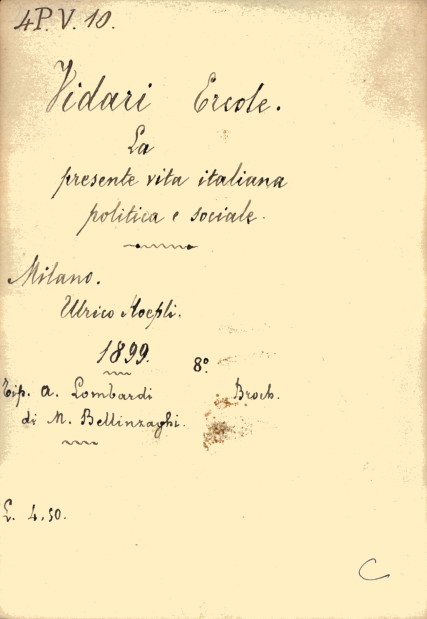 4P. V. 10.
Vidari Ercole.
La
presente vita italiana
politica e sociale.
Milano.
Ulrico Hoepli.
1899. 8º.
Tip. A. Lombardi Broch.
di M. Bellinzaghi.
L. 4,50.
C